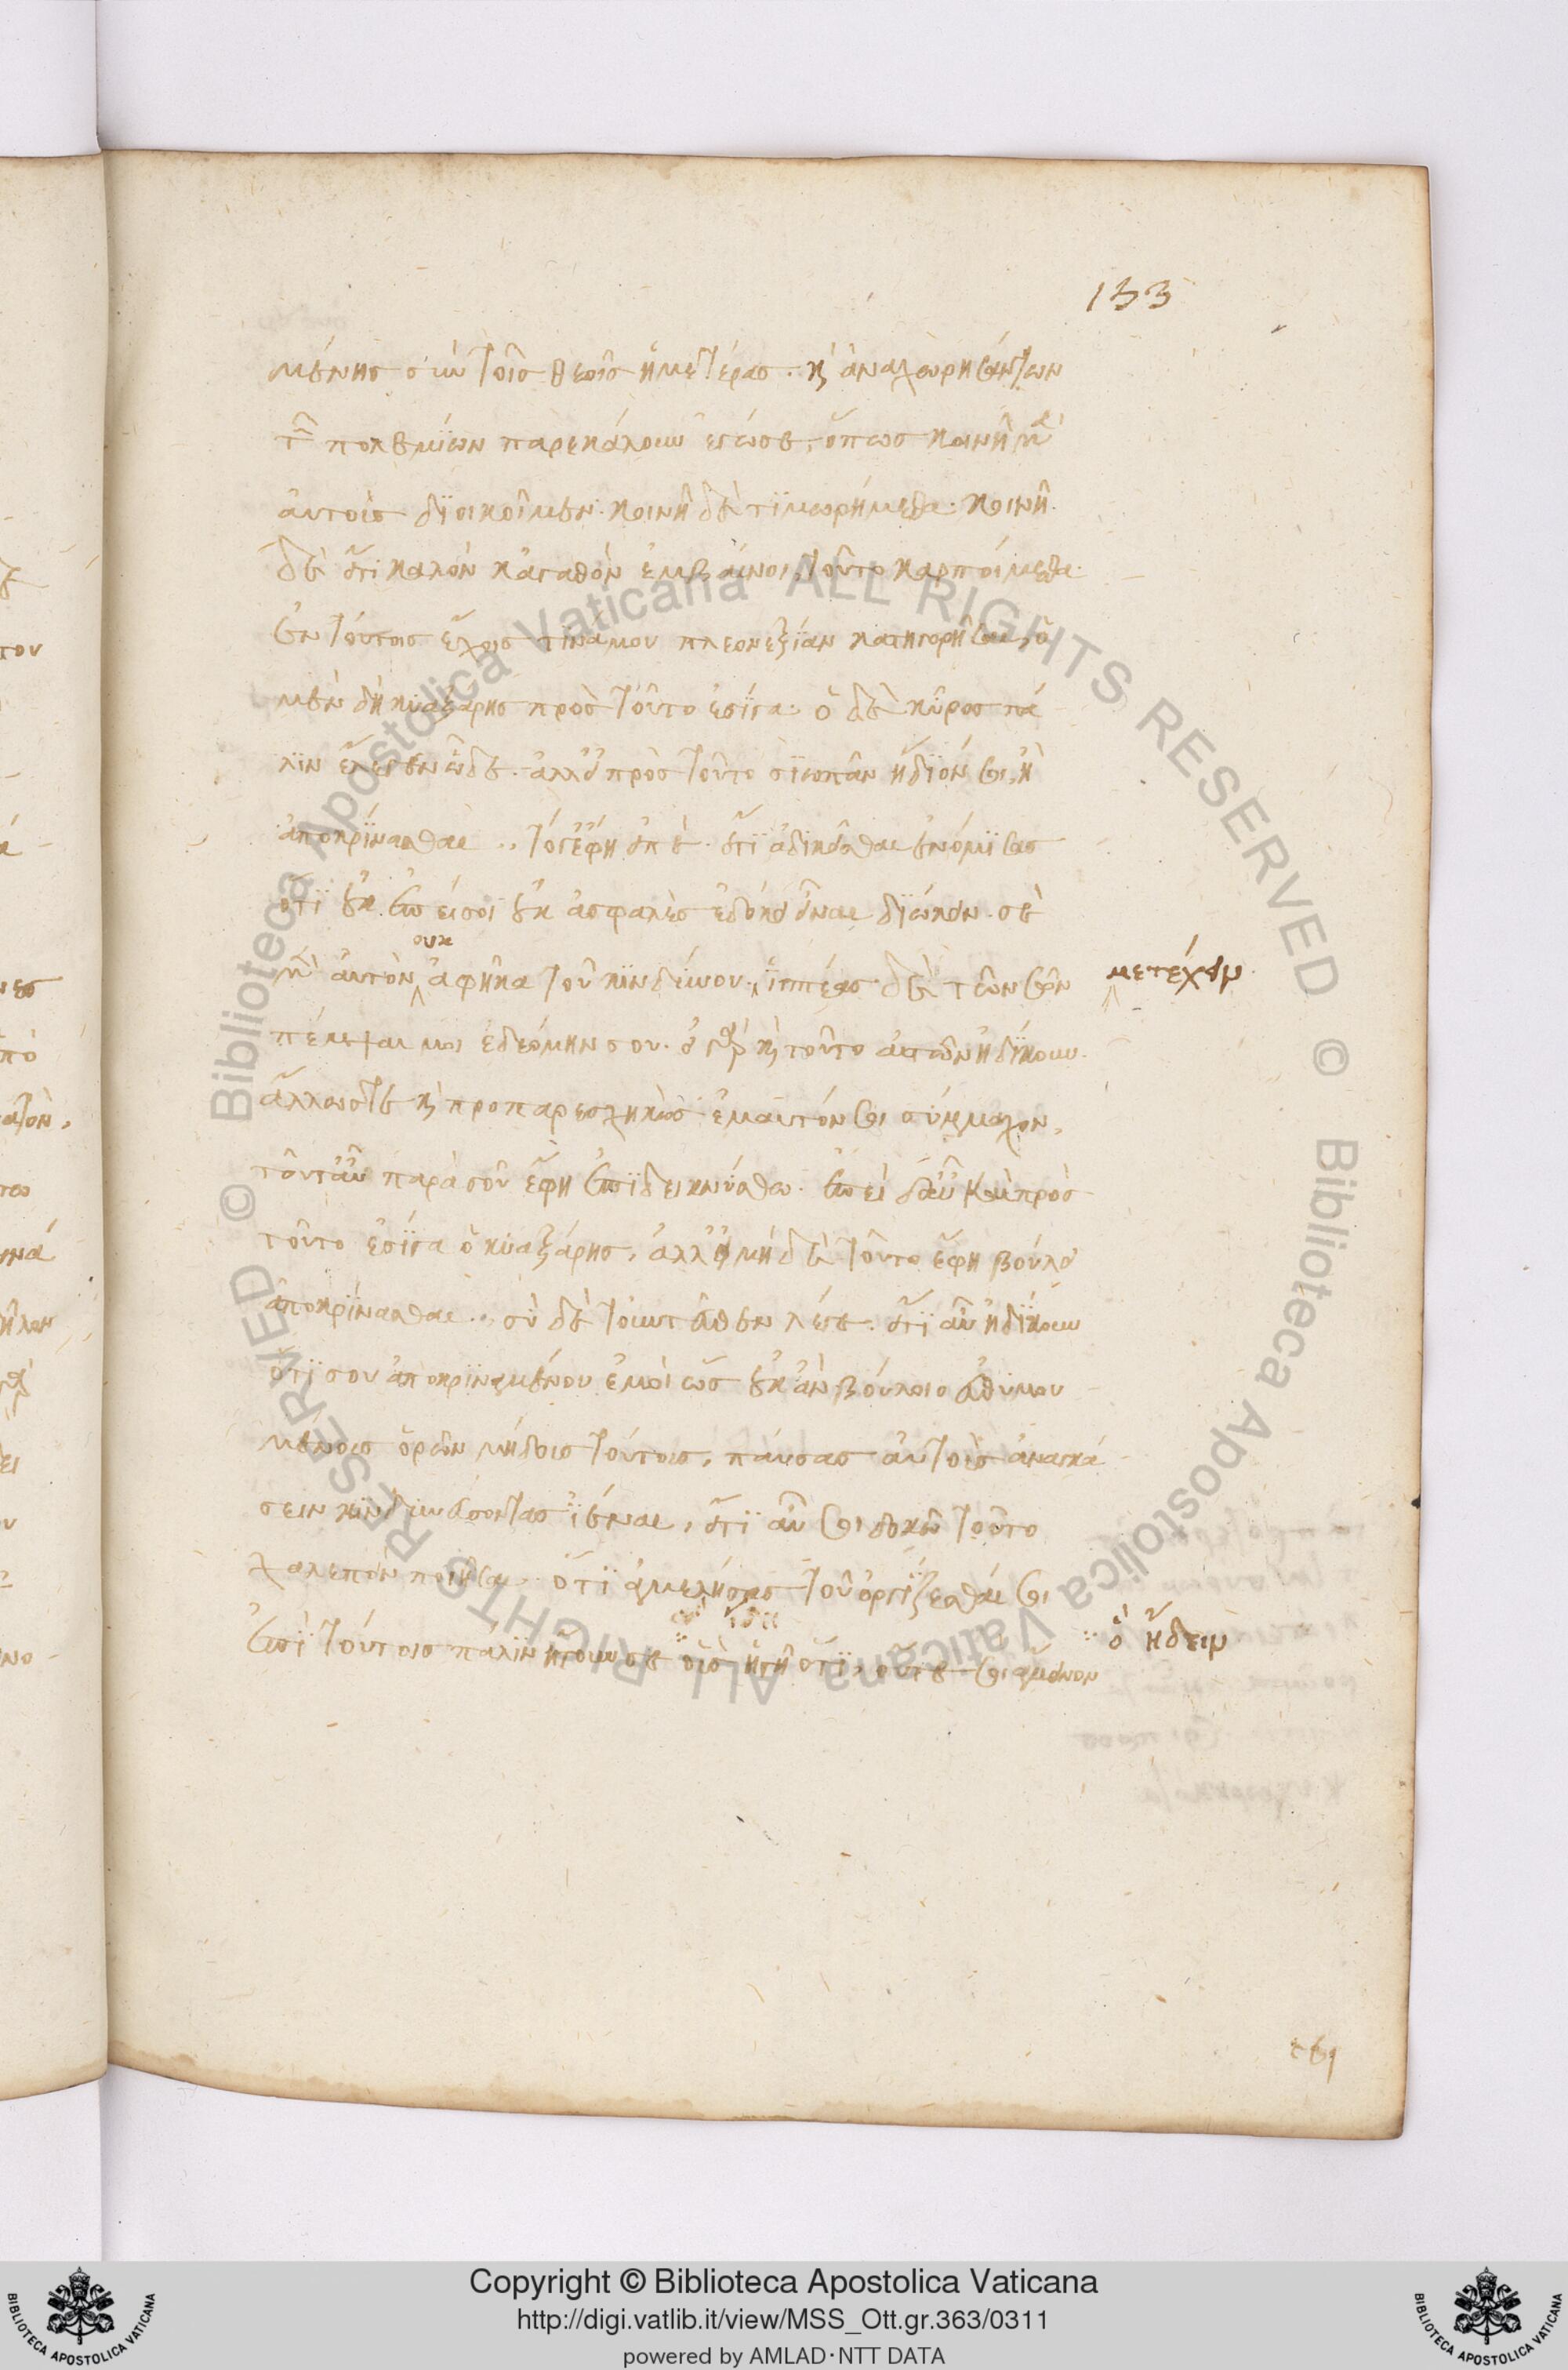 133
μένης σὺν τοῖς θεοῖς ἡμετέρας. κ' ἀναχωρησάντων
τῶν πολεμίων παρεκάλουν ἐγώσε, ὅπως κοινῆ μετ'
αὐτοῖς διοικοῖμεν. κοινῆ δὲ τιμωρήμεθα. κοινῆ.
δὲ ὅτι καλὸν κἀγαθὸν ἐμβαίνοι, τοῦτο καρποίμεθα.
ἐν τούτοις ἔχοις τινάμου πλεονεξίαν κατηγορῆσαι, ὁ
μὲν δὴ κυαξάρης πρὸς τοῦτο ἐσίγα. ὁ δὲ κῦρος πά
λιν ἔλεγεν ὧδε. ἀλλ' εἰ πρὸς τοῦτο σιωπᾶν ἥδιόν σοι, ἢ
ἀποκρίνασθαι .. τόγε ἔφη εἰπὲ. ὅτι ἀδικεῖσθαι ἐνόμισας
ὅτι οὐκ ἐπεί σοι οὐκ ἀσφαλὲς ἐδόκει εἶναι διώκειν. σὲ
μὲν αὐτὸν ουκ ἀφῆκα τοῦ κινδύνου. ἱππέας δὲ τῶν σῶν
μετέχειν.
πέμψαι μοι ἐδεόμην σου. εἰ γὰρ κ' τοῦτο αἰτῶν ἠδίκουν.
ἄλλωστε κ' προπαρεσχηκὼς ἐμαυτόν σοι σύμμαχον,
τοῦτ' αὖ παρὰ σοῦ ἔφη ἐπιδεικνύσθω. ἐπεὶ δ' αὖ καὶ πρὸς
τοῦτο ἐσίγα ὁ κυαξάρης, ἀλλ' εἰ μὴ δὲ τοῦτο ἔφη βούλει
ἀποκρίνασθαι .. σὺ δὲ τοὐντεῦθεν λέγε. ὅτι αὖ ἠδίκουν
ὅτι σου ἀποκριναμένου ἐμοὶ ὡς οὐκ ἂν βούλοιο εὐθυμου
μένοις ὁρῶν μήδοις τούτοις, παύσας αὐτοὺς ἀναγκά
σειν κινδυνεύσοντας ἰέναι, ὅτι αὖ σοι δοκῶ τοῦτο
χαλεπὸν ποιῆσαι. ὅτι ἀμελήσας τοῦ ὀργίζεσθαί σοι
ἐπὶ τούτοις πάλιν ἤτουν σε οἷς ἤτη ὅτι, οὔτε σοι μεῖον
ὃ ᾔδειν
Copyright © Biblioteca Apostolica Vaticana
http://digi.vatlib.it/view/MSS_Ott.gr.363/0311
powered by AMLAD·NTT DATA
BIBLIOTECA APOSTOLICA VATICANA
BIBLIOTECA APOSTOLICA VATICANA
© Biblioteca Apostolica Vaticana ALL RIGHTS RESERVED
© Biblioteca Apostolica Vaticana ALL RIGHTS RESERVED